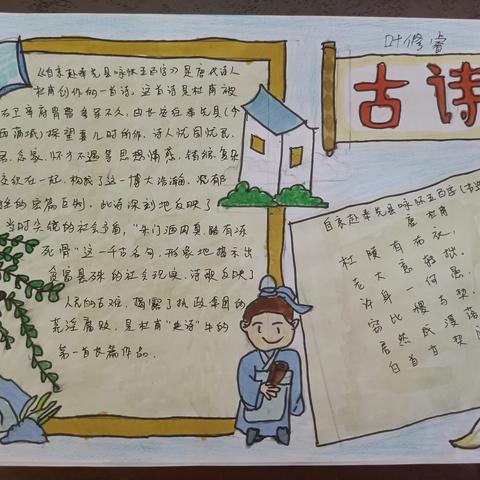 叶修睿
古诗
《自京赴奉先县咏怀五百字》是唐代诗人
杜甫创作的一首诗。这首诗是杜甫被
右卫率府胄曹参军不久，由长安往奉先县(今
西蒲城)探望妻儿时所作，诗人忧国忧民、
念家、怀才不遇等思想情感，错综复杂
交织在一起，构成了这一博大浩瀚、沉郁
的宏篇巨制，此诗深刻地反映了
当时尖锐的社会矛盾，“朱门酒肉臭，路有冻
死骨”这一千古名句，形象地揭示出
贫富悬殊的社会现实，诗歌反映了
人民的苦难，揭露了执政集团的
荒淫腐败，是杜甫“史诗”中的
第一首长篇作品.
自京赴奉先县咏怀五百字(节选
唐 杜甫
杜陵有布衣，
老大意转拙.
许身一何愚，
窃比稷与契
居然成濩落
白首甘契阔